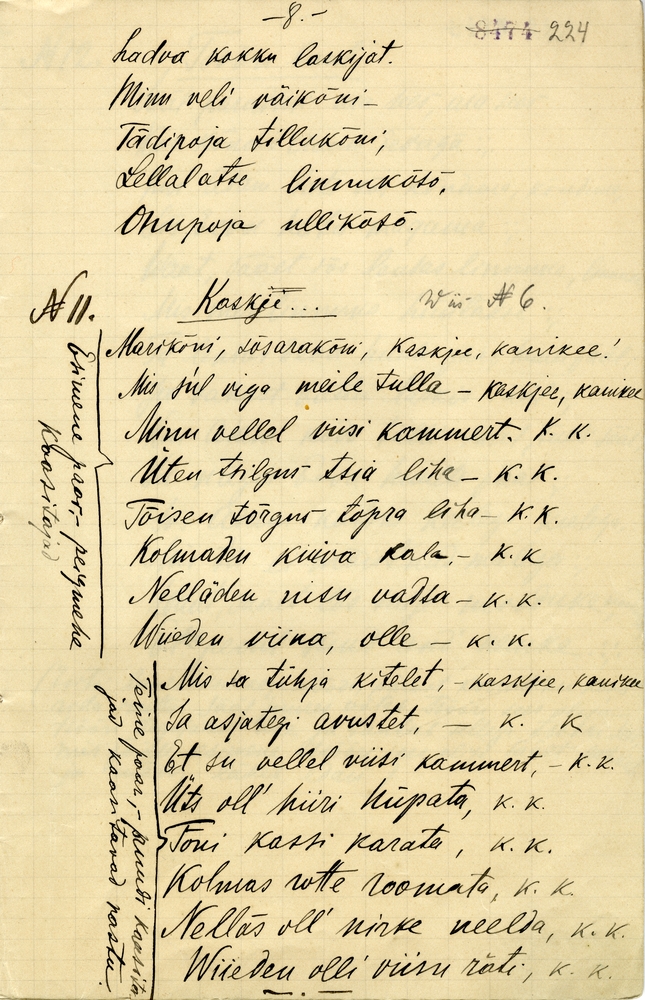 -8.-
8474 224
hadva kokku laskijat.
Minu veli väikõni -
Tädipoja tillukõni,
Lellalatse linnukõsõ,
Onupoja ullikõsõ.
№ 11. Kaskjē... Wiis № 6.
Marikõni, sõsarakõni, kaskjee, kanikee!
Mis sul viga meile tulla - kaskjee, kanikee
Minu vellel viisi kammert. k. k.
Üten tsilgus tsia liha - k. k.
Tõisen tõrgus tõpra liha - k. k.
Kolmaden kuiva kala, - k. k
Nelläden nisu vadsa - k. k.
Wiieden viina, olle - k. k.
Esimene paar, - peigmehe
Kaasitajad
Mis sa tühja kitelet, - kaskjee, kanikee
Sa asjategi avustet, - k. k
Et su vellel viisi kammert, - k. k.
Üts oll' hiiri hüpata, k. k.
Toni kassi karata, k. k.
Kolmas rotte roomata, k. k.
Nelläs oll' nirke neelda, k. k.
Wiieden olli viisu räti, k. k.
Teine paar, - pruudi kaasita
jad kaasitavad vastu.